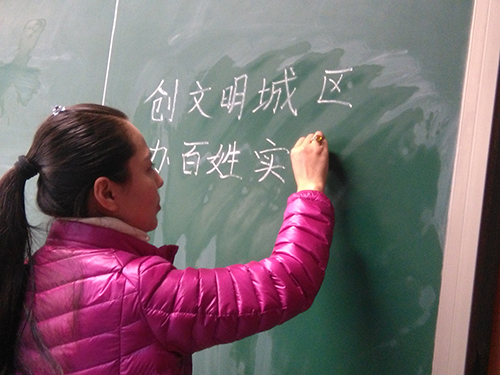 创文明城区
办百姓实